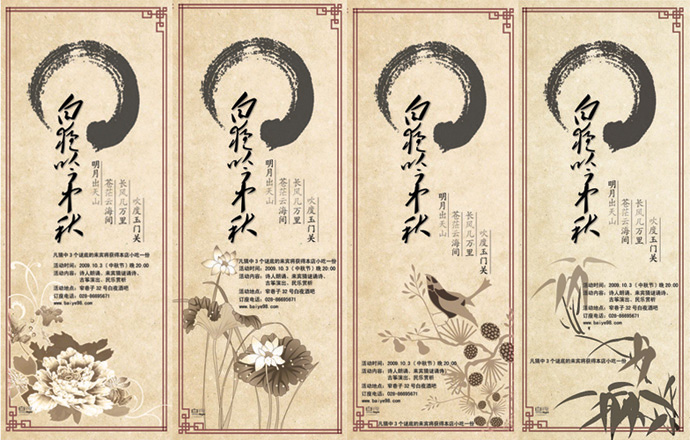 白夜吟中秋
明月出天山
苍茫云海间
长风几万里
吹度玉门关
凡猜中3个谜底的来宾将获得本店小吃一份
活动时间：2009.10.3（中秋节）晚20:00
活动内容：诗人朗诵、来宾猜谜诵诗、
古筝演出、民乐赏析
活动地点：窄巷子32号白夜酒吧
订座电话：028-86695671
www.baiye98.com
白夜吟中秋
明月出天山
苍茫云海间
长风几万里
吹度玉门关
凡猜中3个谜底的来宾将获得本店小吃一份
活动时间：2009.10.3（中秋节）晚20:00
活动内容：诗人朗诵、来宾猜谜诵诗、
古筝演出、民乐赏析
活动地点：窄巷子32号白夜酒吧
订座电话：028-86695671
www.baiye98.com
白夜吟中秋
明月出天山
苍茫云海间
长风几万里
吹度玉门关
活动时间：2009.10.3（中秋节）晚20:00
活动内容：诗人朗诵、来宾猜谜诵诗、
古筝演出、民乐赏析
活动地点：窄巷子32号白夜酒吧
订座电话：028-86695671
www.baiye98.com
凡猜中3个谜底的来宾将获得本店小吃一份
白夜吟中秋
明月出天山
苍茫云海间
长风几万里
吹度玉门关
活动时间：2009.10.3（中秋节）晚20:00
活动内容：诗人朗诵、来宾猜谜诵诗、
古筝演出、民乐赏析
活动地点：窄巷子32号白夜酒吧
订座电话：028-86695671
www.baiye98.com
凡猜中3个谜底的来宾将获得本店小吃一份